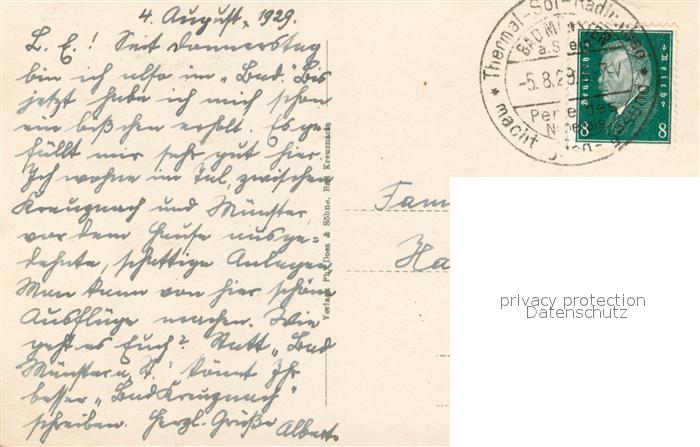 4. August, 1929.
L. E.! Seit Donnerstag
bin ich also im „Bad.“ Bis
jetzt habe ich mich schon
ein bißchen erholt. Es ge-
fällt mir sehr gut hier.
Ich wohne im Tal, zwischen
Kreuznach und Münster,
vor dem Hause ausge-
dehnte, schattige Anlagen.
Man kann von hier schöne
Ausflüge machen. Wie
geht es Euch? Statt „Bad
Münster a. St.“ könnt Ihr
besser „Bad Kreuznach“
schreiben. Herzl. Grüße
Albert.
Verlag Ph. Does & Söhne, Bad Kreuznach
Thermal-Sol-Radiumbad
BAD MÜNSTER
a. Stein
-5.8.29
Perle des
Nahetals
macht
Deutsches Reich
8 8
Fam
Ha
privacy protection
Datenschutz